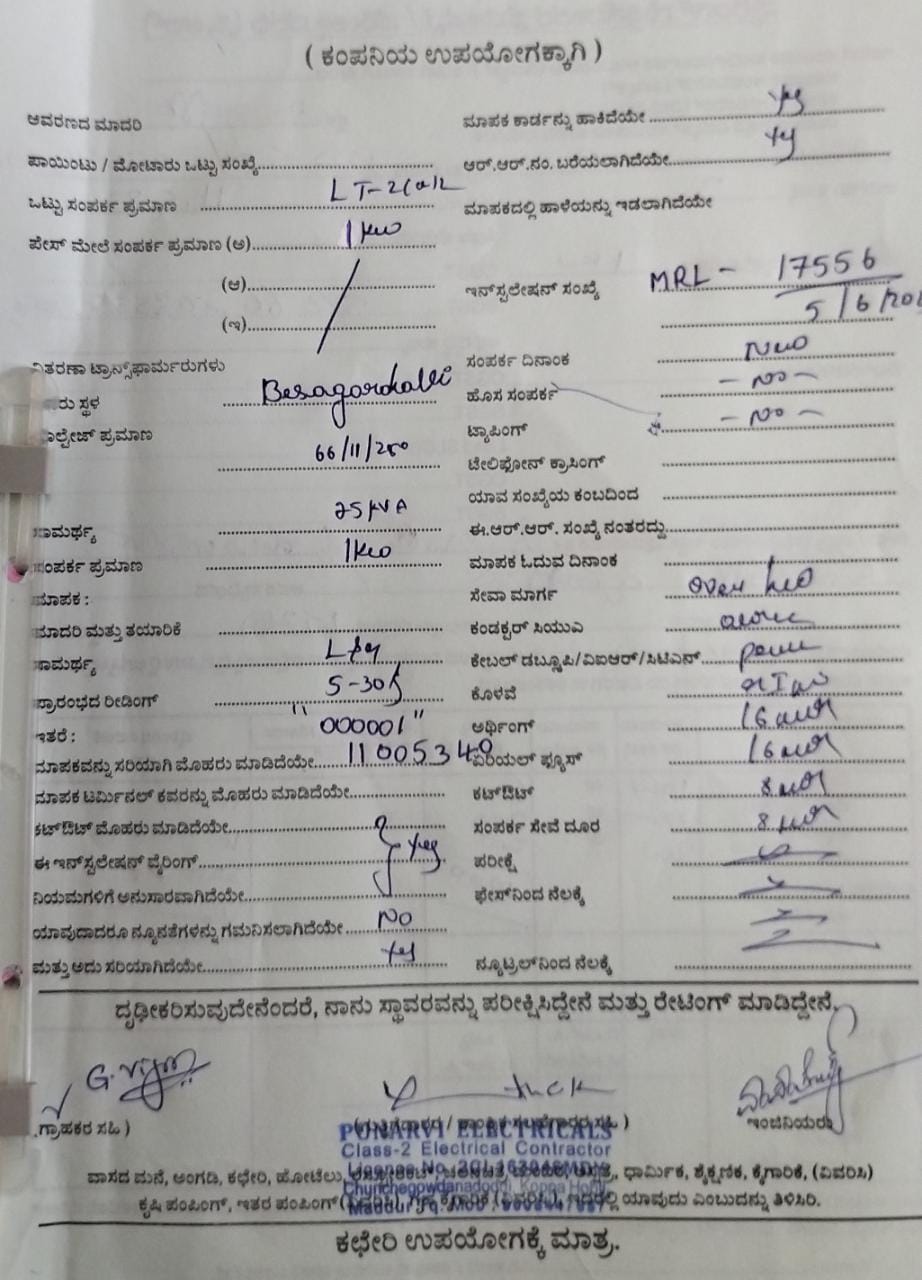 ( ಕಂಪನಿಯ ಉಪಯೋಗಕ್ಕಾಗಿ )
ಆವರಣದ ಮಾದರಿ
ಪಾಯಿಂಟು / ಮೋಟಾರು ಒಟ್ಟು ಸಂಖ್ಯೆ
ಒಟ್ಟು ಸಂಪರ್ಕ ಪ್ರಮಾಣ LT-2(a)
ಪೇಸ್ ಮೇಲೆ ಸಂಪರ್ಕ ಪ್ರಮಾಣ (ಅ) 1 KW
(ಆ)
(ಇ)
ವಿತರಣಾ ಟ್ರಾನ್ಸ್‌ಫಾರ್ಮರುಗಳು
ರು ಸ್ಥಳ Besagarahalli
ಾಲ್ಟೇಜ್ ಪ್ರಮಾಣ
66/11/250
ಸಾಮರ್ಥ್ಯ 25 KVA
ಸಂಪರ್ಕ ಪ್ರಮಾಣ 1KW
ಮಾಪಕ :
ಮಾದರಿ ಮತ್ತು ತಯಾರಿಕೆ
ಸಾಮರ್ಥ್ಯ
ಪ್ರಾರಂಭದ ರೀಡಿಂಗ್ 5-30
ಇತರೆ : "000001"
ಮಾಪಕವನ್ನು ಸರಿಯಾಗಿ ಮೊಹರು ಮಾಡಿದೆಯೇ 11005340
ಮಾಪಕ ಟರ್ಮಿನಲ್ ಕವರನ್ನು ಮೊಹರು ಮಾಡಿದೆಯೇ
ಕಟ್‌ಔಟ್ ಮೊಹರು ಮಾಡಿದೆಯೇ
ಈ ಇನ್‌ಸ್ಟಲೇಷನ್ ವೈರಿಂಗ್ Yes
ನಿಯಮಗಳಿಗೆ ಅನುಸಾರವಾಗಿದೆಯೇ
ಯಾವುದಾದರೂ ನ್ಯೂನತೆಗಳನ್ನು ಗಮನಿಸಲಾಗಿದೆಯೇ No
ಮತ್ತು ಅದು ಸರಿಯಾಗಿದೆಯೇ Yes
ಮಾಪಕ ಕಾರ್ಡನ್ನು ಹಾಕಿದೆಯೇ Yes
ಆರ್.ಆರ್.ನಂ. ಬರೆಯಲಾಗಿದೆಯೇ Yes
ಮಾಪಕದಲ್ಲಿ ಹಾಳೆಯನ್ನು ಇಡಲಾಗಿದೆಯೇ
ಇನ್‌ಸ್ಟಲೇಷನ್ ಸಂಖ್ಯೆ MRL - 17556
5/6/
ಸಂಪರ್ಕ ದಿನಾಂಕ
ಹೊಸ ಸಂಪರ್ಕ - No -
ಟ್ಯಾಪಿಂಗ್ - No -
ಟೇಲಿಫೋನ್ ಕ್ರಾಸಿಂಗ್
ಯಾವ ಸಂಖ್ಯೆಯ ಕಂಬದಿಂದ
ಈ.ಆರ್.ಆರ್. ಸಂಖ್ಯೆ ನಂತರದ್ದು
ಮಾಪಕ ಓದುವ ದಿನಾಂಕ
ಸೇವಾ ಮಾರ್ಗ Over
ಕಂಡಕ್ಟರ್ ಸಿಯುಎ
ಕೇಬಲ್ ಡಬ್ಲ್ಯೂಪಿ/ವಿಐಆರ್/ಸಿಟಿಎಸ್
ಕೊಳವೆ
ಅರ್ಥಿಂಗ್ 16
ಏರಿಯಲ್ ಫ್ಯೂಸ್ 16
ಕಟ್‌ಔಟ್ 8
ಸಂಪರ್ಕ ಸೇವೆ ದೂರ 8
ಪರೀಕ್ಷೆ
ಫೇಸ್‌ನಿಂದ ನೆಲಕ್ಕೆ
ನ್ಯೂಟ್ರಲ್‌ನಿಂದ ನೆಲಕ್ಕೆ
ದೃಢೀಕರಿಸುವುದೇನೆಂದರೆ, ನಾನು ಸ್ಥಾವರವನ್ನು ಪರೀಕ್ಷಿಸಿದ್ದೇನೆ ಮತ್ತು ರೇಟಿಂಗ್ ಮಾಡಿದ್ದೇನೆ.
ಗ್ರಾಹಕರ ಸಹಿ )
ಇಂಜಿನಿಯರು
PUNARVI ELECTRICALS
Class-2 Electrical Contractor
ವಾಸದ ಮನೆ, ಅಂಗಡಿ, ಕಛೇರಿ, ಹೋಟೆಲು, ಧಾರ್ಮಿಕ, ಶೈಕ್ಷಣಿಕ, ಕೈಗಾರಿಕೆ, (ವಿವರಿಸಿ)
ಕೃಷಿ ಪಂಪಿಂಗ್, ಇತರ ಪಂಪಿಂಗ್ (ವಿವರಿಸಿ), ಇದರಲ್ಲಿ ಯಾವುದು ಎಂಬುದನ್ನು ತಿಳಿಸಿರಿ.
ಕಛೇರಿ ಉಪಯೋಗಕ್ಕೆ ಮಾತ್ರ.